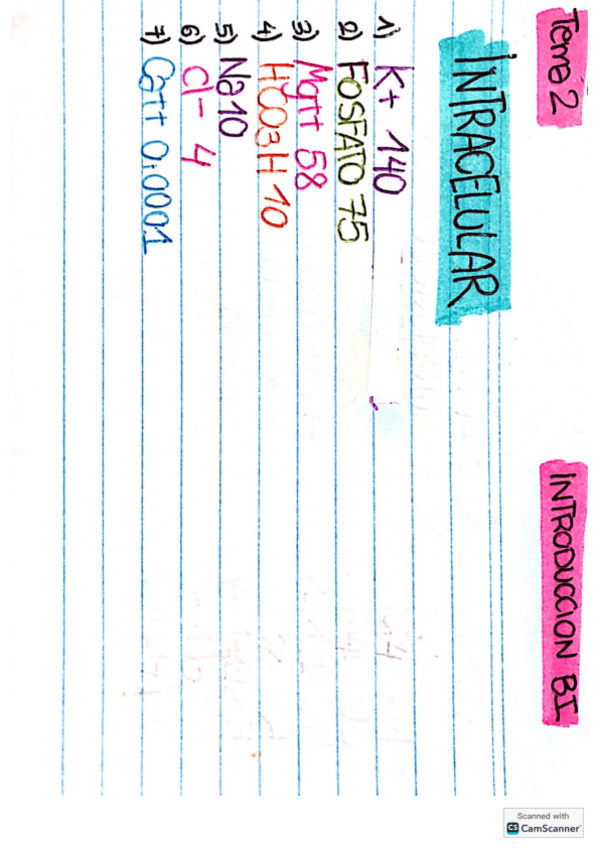 Tema 2
INTRODUCCION BI
INTRACELULAR
1) K+ 140
2) FOSFATO 75
3) Mg++ 58
4) HCO3H 10
5) Na 10
6) Cl- 4
7) Ca++ 0,0001
Scanned with
CS CamScanner